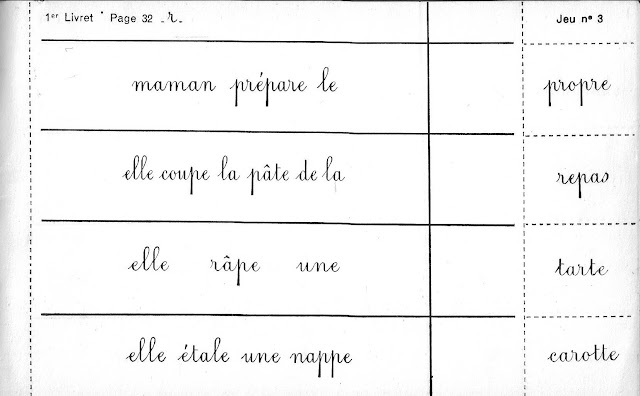 1er Livret • Page 32 - r - Jeu n° 3
maman prépare le propre
elle coupe la pâte de la repas
elle râpe une tarte
elle étale une nappe carotte